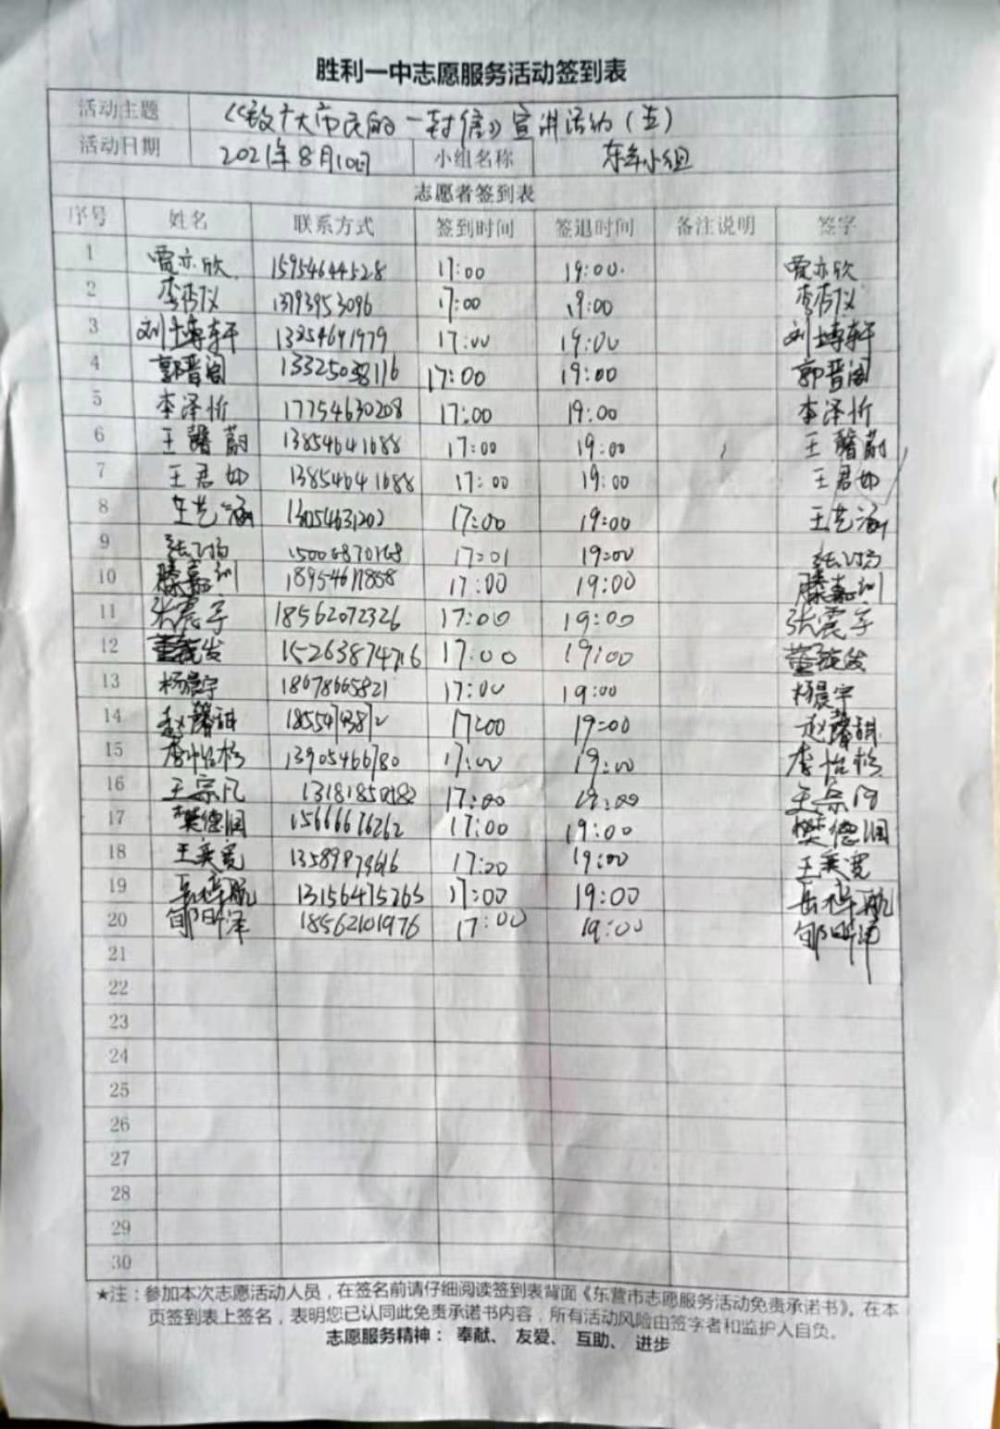 胜利一中志愿服务活动签到表
活动主题 《致广大市民的一封信》宣讲活动（五）
活动日期 2021年8月10日 小组名称 东年小组
志愿者签到表
序号 姓名 联系方式 签到时间 签退时间 备注说明 签字
1 贾亦欣 15954644528 17:00 19:00. 贾亦欣
2 13793953096 17:00 19:00
3 刘博轩 13254641979 17:00 19:00 刘博轩
4 郭晋阁 13325038116 17:00 19:00 郭晋阁
5 李泽忻 17754630208 17:00 19:00 李泽忻
6 王馨蔚 13854641688 17:00 19:00 王馨蔚
7 王君如 13854641688 17:00 19:00 王君如
8 王艺涵 13054631202 17:00 19:00 王艺涵
9 15006870168 17:01 19:00
10 滕嘉训 18954617858 17:00 19:00 滕嘉训
11 张震宇 18562072326 17:00 19:00 张震宇
12 15263874716 17:00 19:00
13 杨晨宇 18678665821 17:00 19:00 杨晨宇
14 赵馨甜 17:00 19:00 赵馨甜
15 李怡杉 13905466780 17:00 19:00 李怡杉
16 王宗凡 13181850182 17:00 19:00 王宗凡
17 樊德润 15666676262 17:00 19:00 樊德润
18 王奕宽 13589874616 17:20 19:00 王奕宽
19 岳梓航 13156475265 17:00 19:00 岳梓航
20 郇昕泽 18562101976 17:00 19:00 郇昕泽
21
22
23
24
25
26
27
28
29
30
★注：参加本次志愿活动人员，在签名前请仔细阅读签到表背面《东营市志愿服务活动免责承诺书》。在本
页签到表上签名，表明您已认同此免责承诺书内容，所有活动风险由签字者和监护人自负。
志愿服务精神： 奉献、 友爱、 互助、 进步